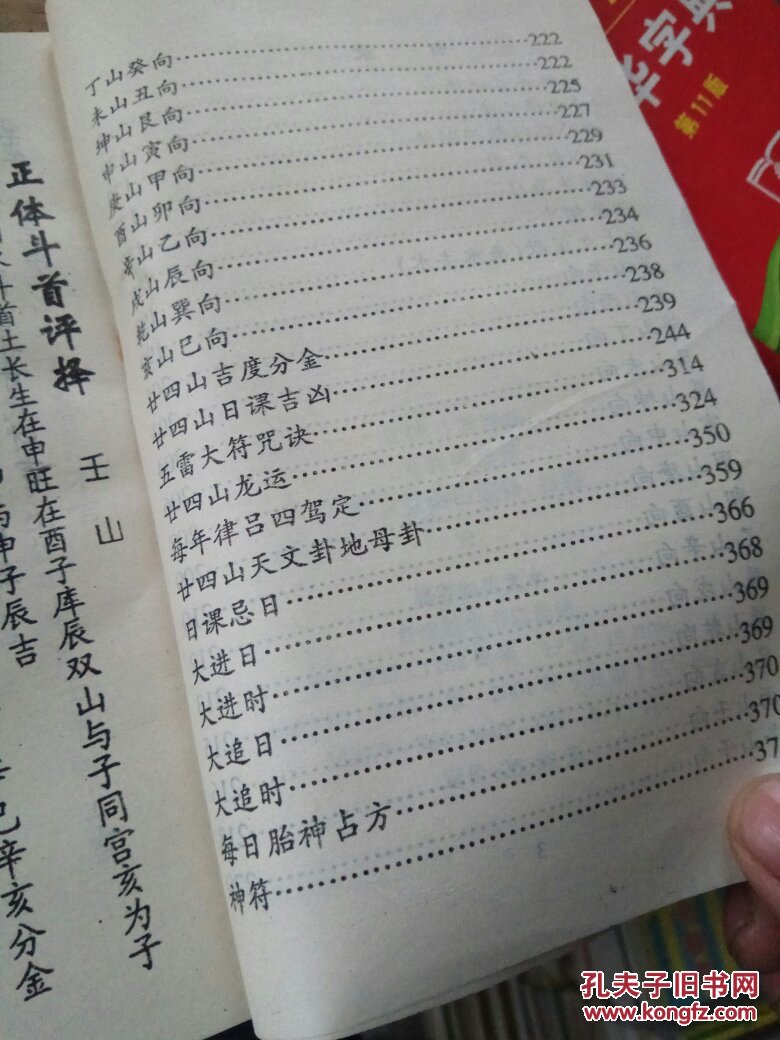 丁山癸向……222
未山丑向……222
坤山艮向……225
申山寅向……227
庚山甲向……229
酉山卯向……231
辛山乙向……233
戌山辰向……234
乾山巽向……236
亥山巳向……238
廿四山吉度分金……239
廿四山日课吉凶……244
五雷大符咒诀……314
廿四山龙运……324
每年律吕四驾定……350
廿四山天文卦地母卦……359
日课忌日……366
大进日……368
大进时……369
大追日……369
大追时……370
每日胎神占方……370
神符……37
正体斗首评择
壬山
斗首土长生在申旺在酉子库辰双山与子同宫亥为子
申子辰吉
己辛亥分金
华字典
第11版
孔夫子旧书网
www.kongfz.com